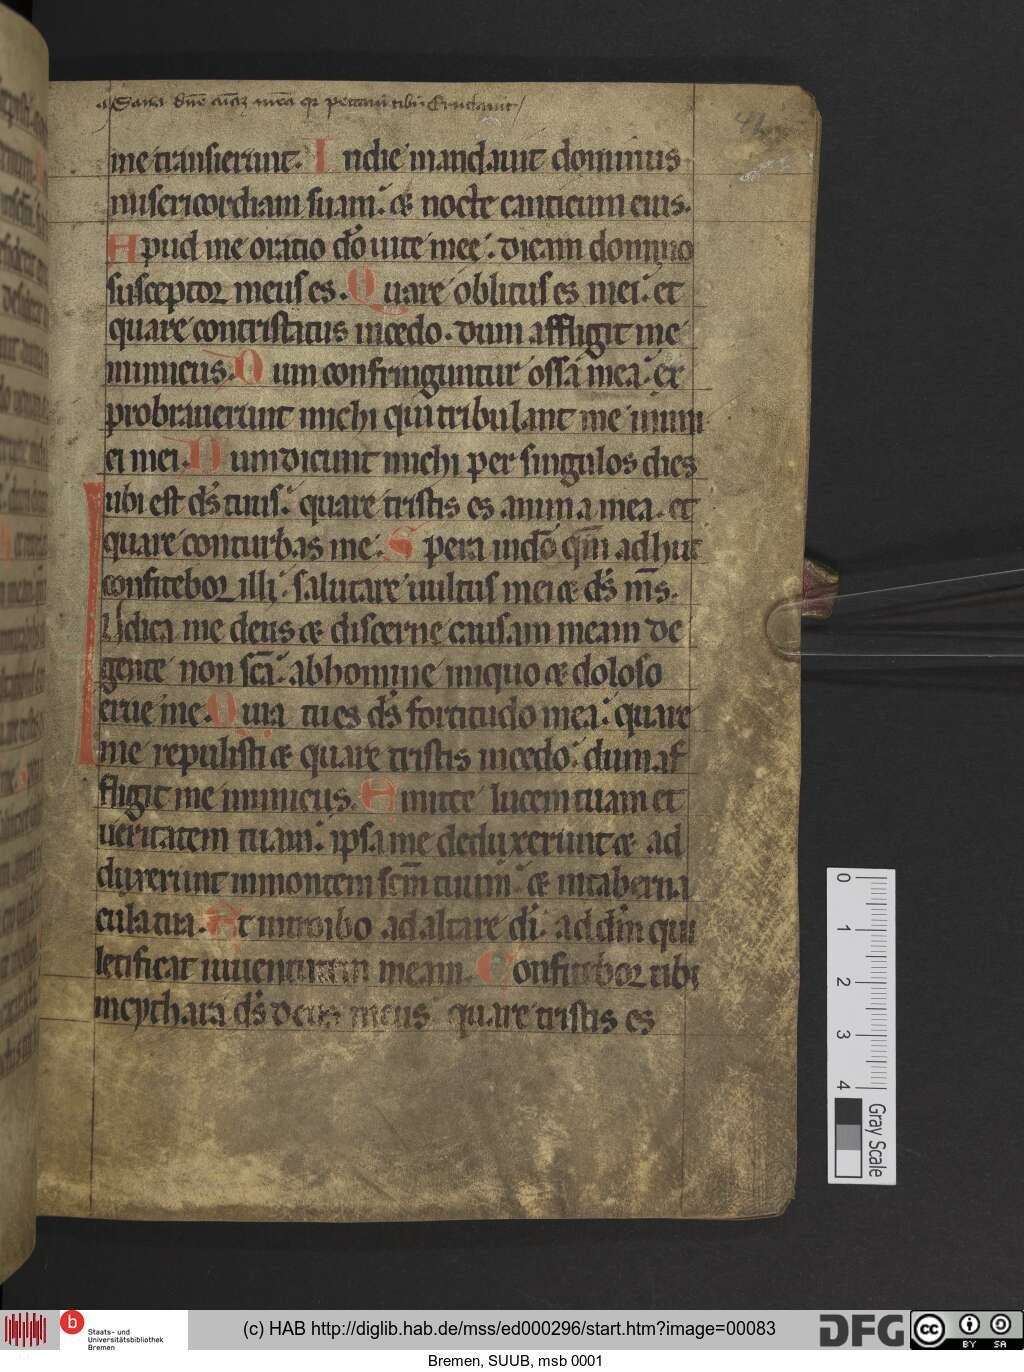 Sana dñe aīaȝ meā qr peccaui tibi Eructauit
41
me transierunt. In die mandauit dominus
misericordiam suam: & nocte canticum eius.
Apud me oratio dõ uite meę: dicam domino
susceptor meus es. Quare oblitus es mei: et
quare contristatus incedo. dum affligit me
inimicus. Dum confringuntur ossa mea: ex
probrauerunt michi qui tribulant me inimi
ci mei. Dum dicunt michi per singulos dies
ubi est ds̄ tuus: quare tristis es anima mea. et
quare conturbas me: Spera in dõ qm̄ adhuc
confitebor illi: salutare uultus mei & ds̄ ms̄.
Iudica me deus & discerne causam meam de
gente non scā: ab homine iniquo & doloso
erue me. Quia tu es ds̄ fortitudo mea: quare
me repulisti & quare tristis incedo: dum af
fligit me inimicus. Emitte lucem tuam et
ueritatem tuam: ipsa me deduxerunt & ad
duxerunt in montem scm̄ tuum: & in taberna
cula tua. Et introibo ad altare di: ad dm̄ qui
letificat iuuentutem meam. Confitebor tibi
in cythara ds̄ deus meus: quare tristis es
0
1
2
3
4
Gray Scale
b Staats- und
Universitätsbibliothek
Bremen
(c) HAB http://diglib.hab.de/mss/ed000296/start.htm?image=00083
DFG
cc BY SA
Bremen, SUUB, msb 0001